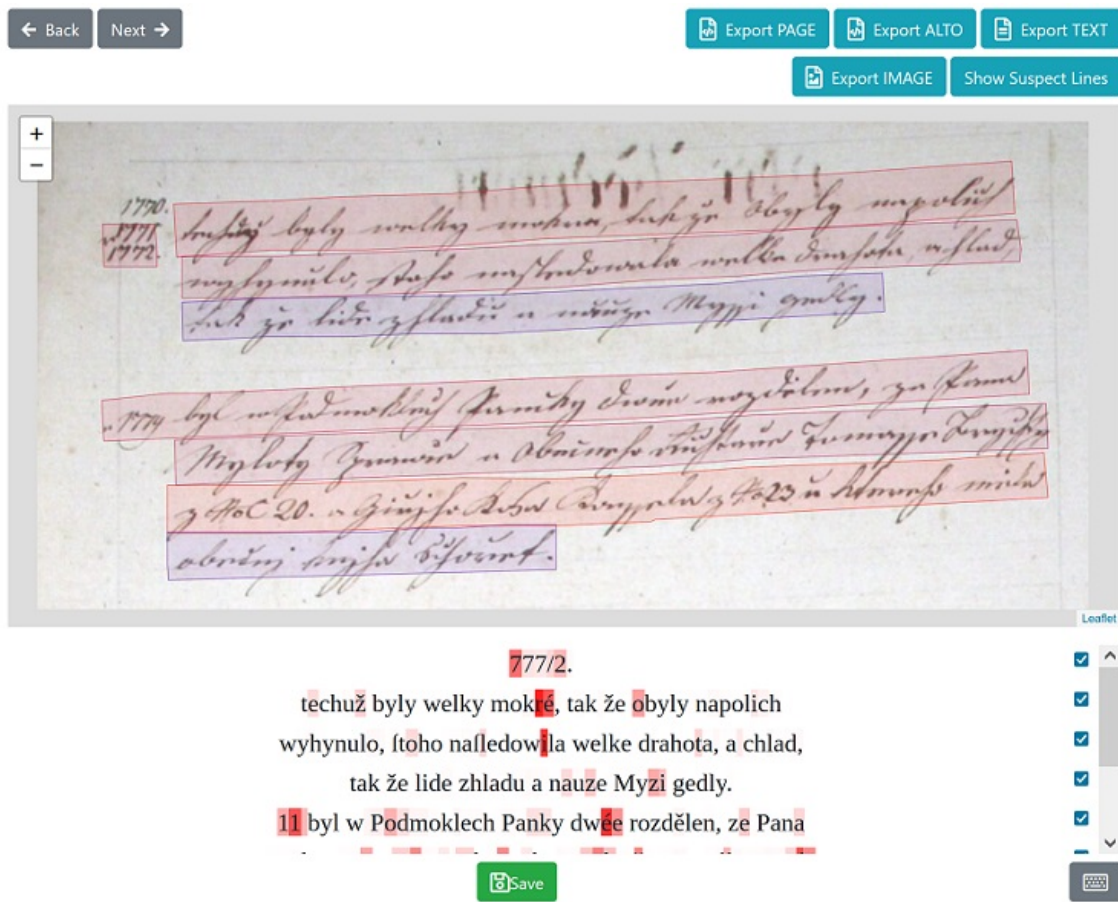 Back Next Export PAGE Export ALTO Export TEXT
Export IMAGE Show Suspect Lines
+
−
1770.
1771
1772.
techuž byly welky mokra, tak že obyly napolich
wyhynulo, stoho nasledowala welka drahota, a hlad,
tak že lide zhladu a nauze Myssi gedly.
1774 byl w Podmoklech Panský dwur rozdělen, za Pana
Myloty Sprawce a Obecneho Tomasse
z No C 20. a z No 23 u ktereho měla
obecni
Leaflet
777/2.
techuž byly welky mokré, tak že obyly napolich
wyhynulo, ſtoho naſledowila welke drahota, a chlad,
tak že lide zhladu a nauze Myzi gedly.
11 byl w Podmoklech Panky dwée rozdělen, ze Pana
Save